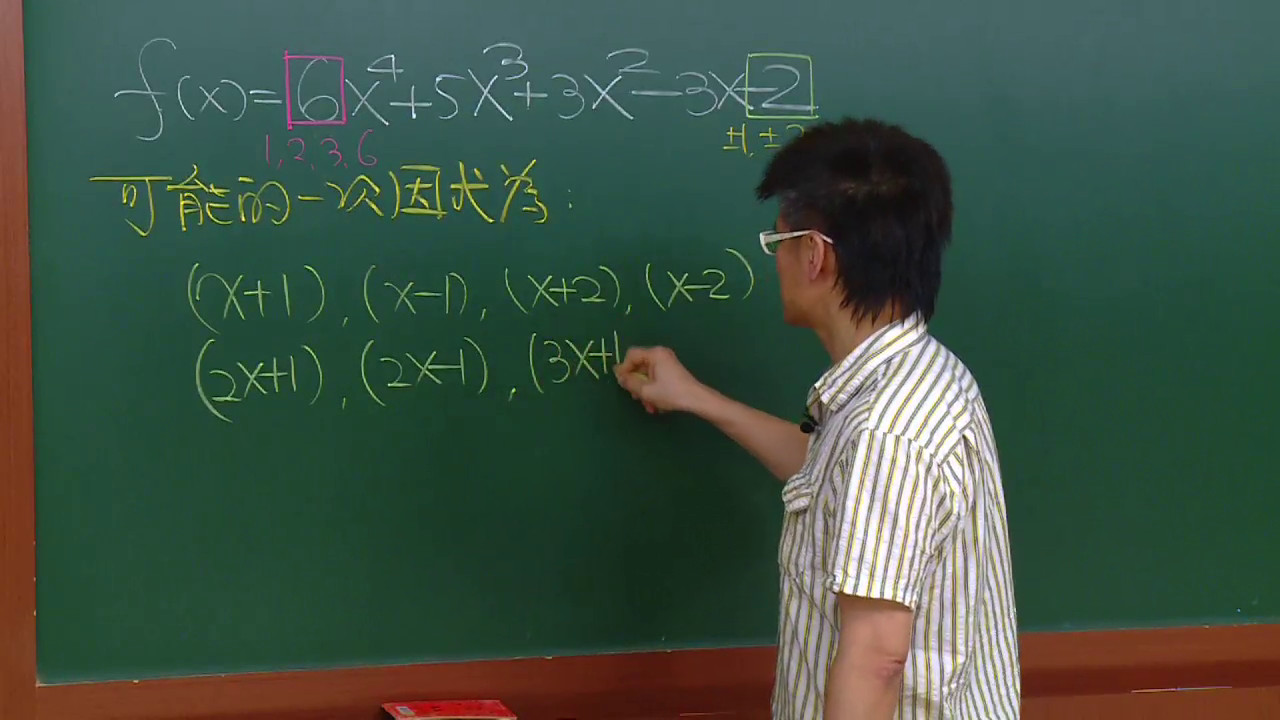 f(x)=6x⁴+5x³+3x²-3x-2
1,2,3,6 ±1,±2
可能的一次因式為:
(x+1),(x-1),(x+2),(x-2)
(2x+1),(2x-1),(3x+1